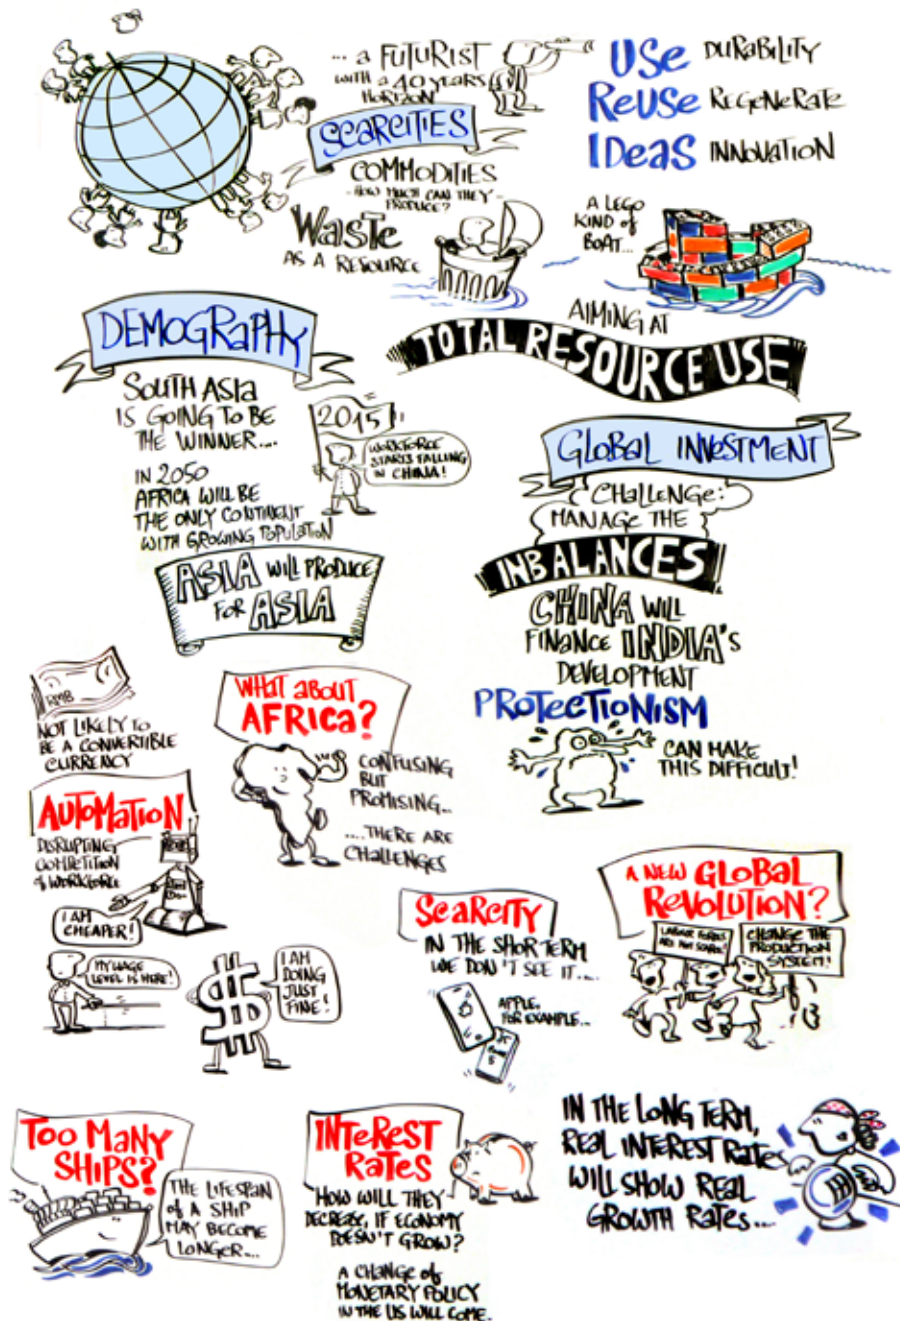 ... a FUTURIST
WITH a 40 YEARS
HORIZON
SCARCITIES
COMMODITIES
...HOW MUCH CAN THEY
PRODUCE?
WASTE
AS A RESOURCE
USE DURABILITY
REUSE REGENERATE
IDEAS INNOVATION
A LEGO
KIND of
BOAT...
AIMING AT
TOTAL RESOURCE USE
DEMOGRAPHY
SOUTH ASIA
IS GOING TO BE
THE WINNER....
IN 2050
AFRICA WILL BE
THE ONLY CONTINENT
WITH GROWING POPULATION
2015
WORKFORCE
STARTS FALLING
IN CHINA!
ASIA WILL PRODUCE
FOR ASIA
GLOBAL INVESTMENT
CHALLENGE:
MANAGE THE
INBALANCES
CHINA WILL
FINANCE INDIA'S
DEVELOPMENT
PROTECTIONISM
CAN MAKE
THIS DIFFICULT!
RMB
NOT LIKELY TO
BE A CONVERTIBLE
CURRENCY
WHAT ABOUT
AFRICA?
CONFUSING
BUT
PROMISING...
....THERE ARE
CHALLENGES
AUTOMATION
DISRUPTING
COMPETITION
of WORKFORCE
I AM
CHEAPER!
MY WAGE
LEVEL IS HERE!
$
I AM
DOING
JUST
FINE!
SCARCITY
IN THE SHOR TERM
WE DON'T SEE IT....
APPLE,
FOR EXAMPLE...
A NEW GLOBAL
REVOLUTION?
LABOUR FORCES
ARE NOT SCARCE!
CHANGE THE
PRODUCTION
SYSTEM!
TOO MANY
SHIPS?
THE LIFESPAN
of A SHIP
MAY BECOME
LONGER...
INTEREST
RATES
HOW WILL THEY
DECREASE, IF ECONOMY
DOESN'T GROW?
A CHANGE of
MONETARY POLICY
IN THE US WILL COME.
IN THE LONG TERM,
REAL INTEREST RATES
WILL SHOW REAL
GROWTH RATES...